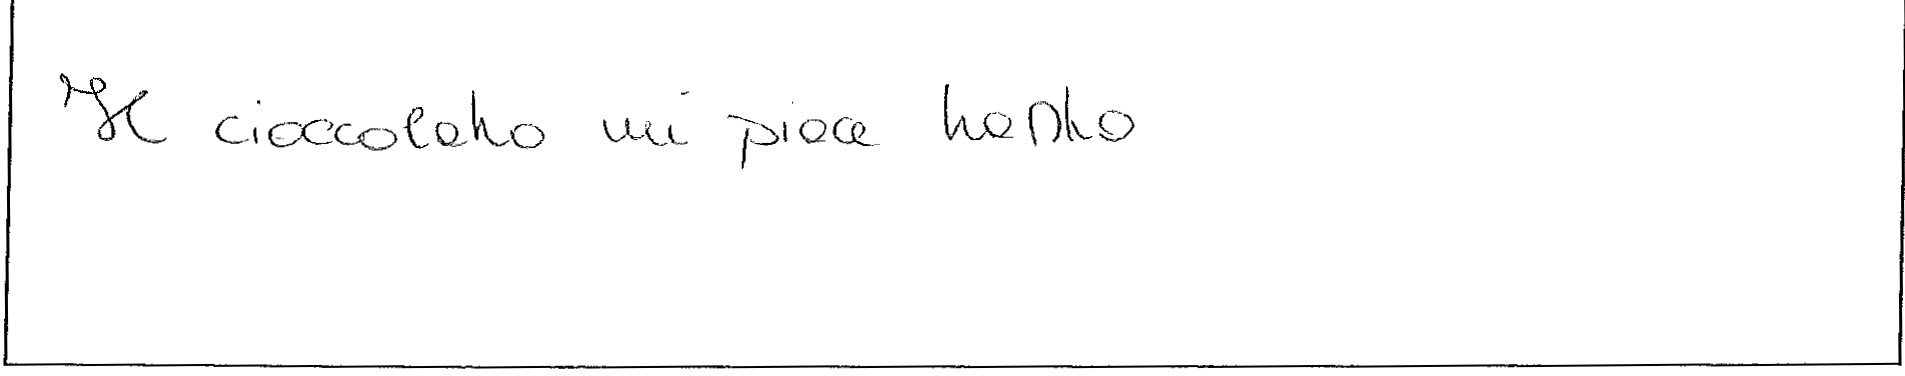 Il cioccolato mi piace tanto